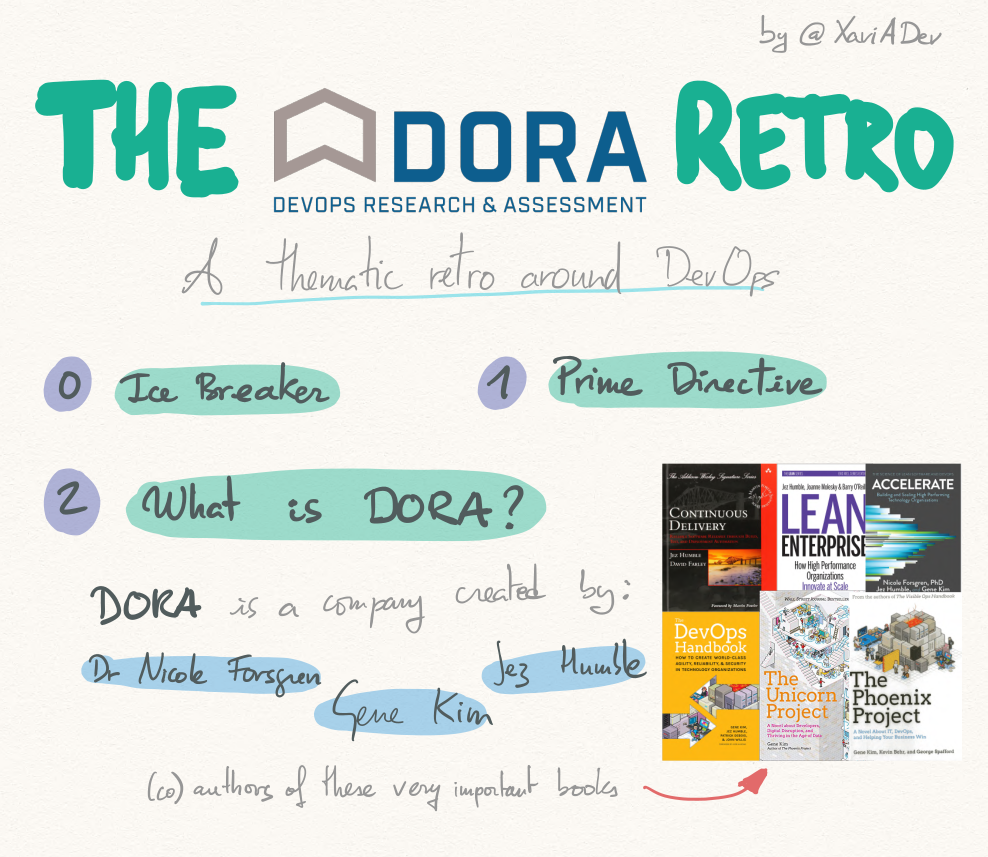 by @XaviADev
THE DORA RETRO
DEVOPS RESEARCH & ASSESSMENT
A thematic retro around DevOps
0 Ice Breaker
1 Prime Directive
2 What is DORA?
DORA is a company created by:
Dr Nicole Forsgren
Gene Kim
Jez Humble
(co) authors of these very important books
The Addison Wesley Signature Series
CONTINUOUS
DELIVERY
JEZ HUMBLE
DAVID FARLEY
Foreword by Martin Fowler
Jez Humble, Joanne Molesky & Barry O'Reil
LEAN
ENTERPRISE
How High Performance
Organizations
Innovate at Scale
ACCELERATE
Building and Scaling High Performing
Technology Organizations
Nicole Forsgren, PhD
Jez Humble, Gene Kim
The
DevOps
Handbook
HOW TO CREATE WORLD-CLASS
AGILITY, RELIABILITY, & SECURITY
IN TECHNOLOGY ORGANIZATIONS
GENE KIM,
JEZ HUMBLE,
PATRICK DEBOIS,
& JOHN WILLIS
WALL STREET JOURNAL BESTSELLER
The
Unicorn
Project
A Novel about Developers,
Digital Disruption, and
Thriving in the Age of Data
Gene Kim
Author of The Phoenix Project
From the authors of The Visible Ops Handbook
The
Phoenix
Project
A Novel About IT, DevOps,
and Helping Your Business Win
Gene Kim, Kevin Behr, and George Spafford